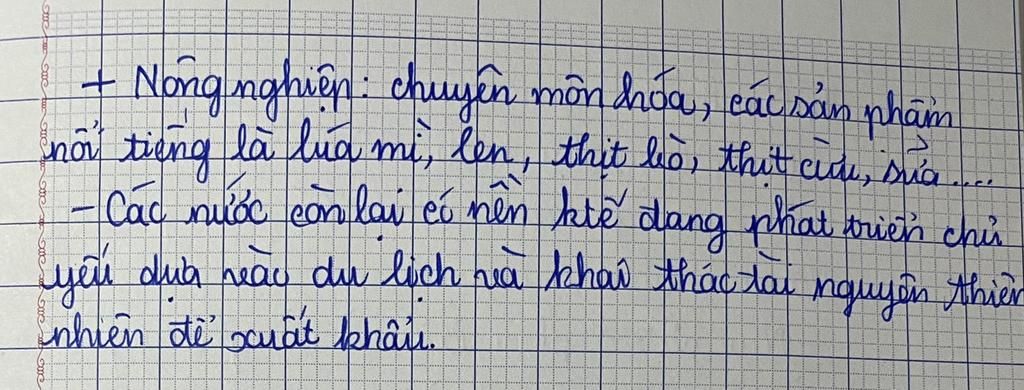 + Nông nghiệp: chuyên môn hóa, các sản phẩm
nổi tiếng là lúa mì, len, thịt bò, thịt cừu, sữa....
- Các nước còn lại có nền ktế đang phát triển chủ
yếu dựa vào du lịch và khai thác tài nguyên thiên
nhiên để xuất khẩu.